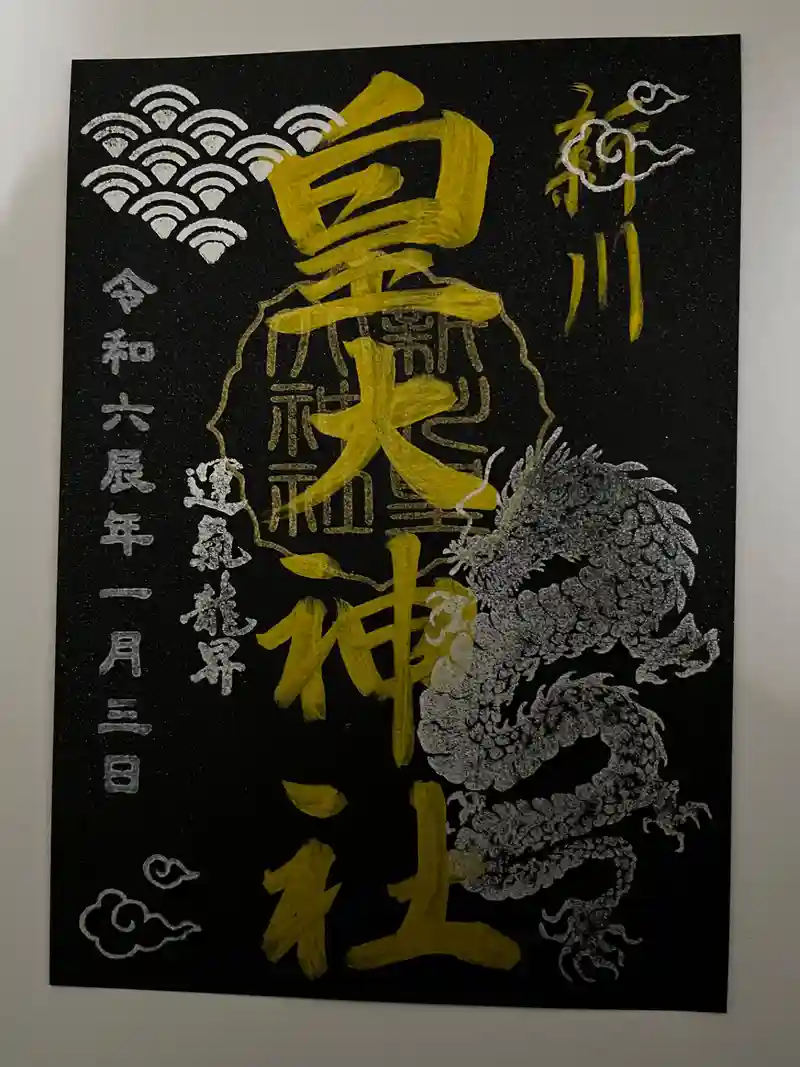 新川
皇大神社
新川皇
大神社
運氣龍昇
令和六辰年一月三日